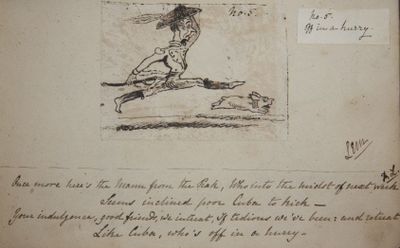 no. 5.
no. 5.
off in a hurry.
Once more here's the Mann from the Rak, Who into the midst of next week
Seems inclined poor Cuba to kick —
Your indulgence, good friends, we intreat, If tedious we've been: and retreat
Like Cuba, who's off in a hurry.